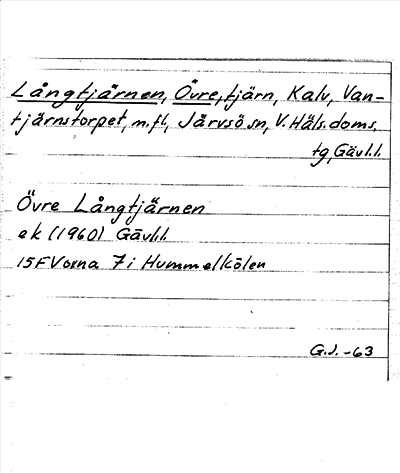 Långtjärnen, Övre, tjärn, Kalv, Van-
tjärnstorpet, m.fl., Järvsö sn, V. Häls. doms.
tg, Gävl.l.
Övre Långtjärnen
ek (1960) Gävl.l.
15F Vorna 7 i Hummelkölen
G.J. -63